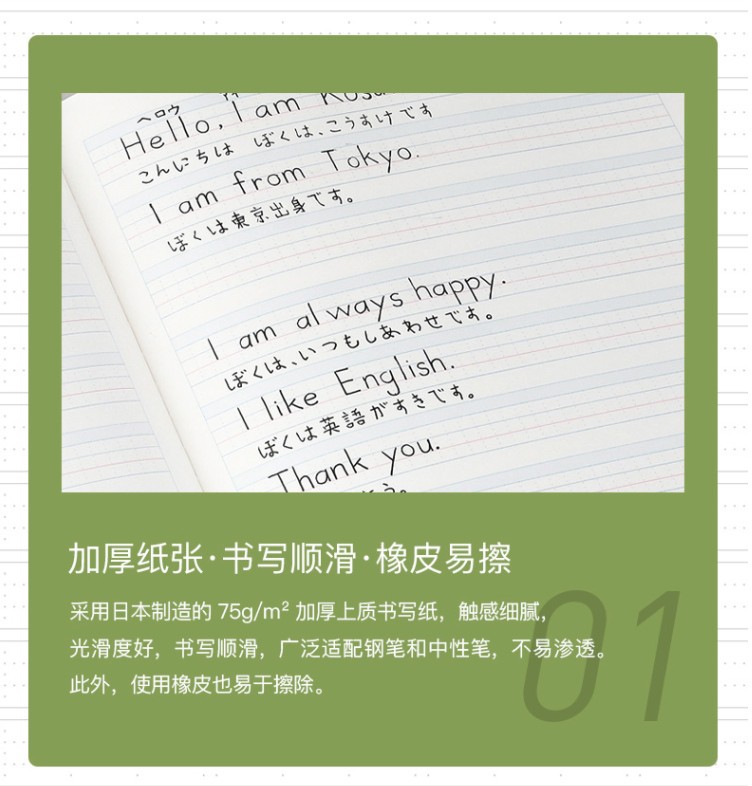 ヘロウ
Hello, I am Kosu
こんにちは ぼくは、こうすけです
I am from Tokyo.
ぼくは東京出身です。
I am always happy.
ぼくは、いつもしあわせです。
I like English.
ぼくは英語がすきです。
Thank you.
加厚纸张·书写顺滑·橡皮易擦
采用日本制造的 75g/m² 加厚上质书写纸，触感细腻，
光滑度好，书写顺滑，广泛适配钢笔和中性笔，不易渗透。
此外，使用橡皮也易于擦除。
01